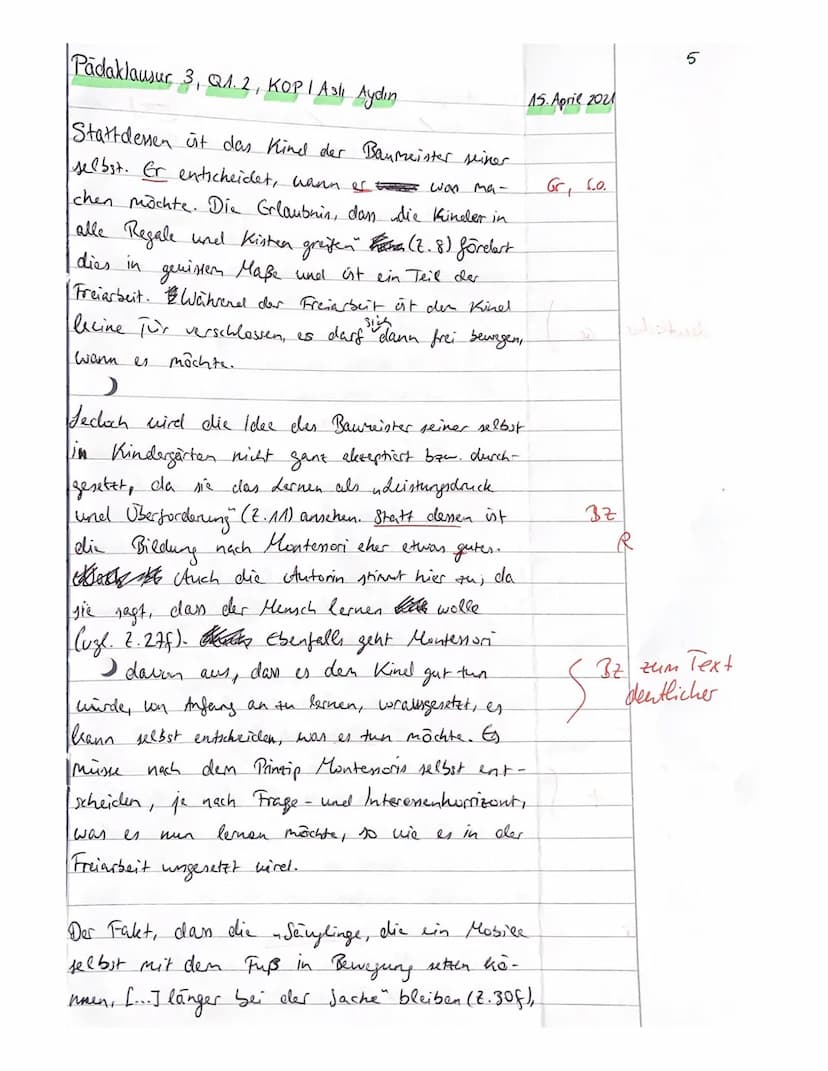 5
Pädaklausur 3, Q1.2, KOP | Aslı Aydın
15. April 2021
Stattdessen ist das Kind der Baumeister seiner
selbst. Er entscheidet, wann er was ma-
Gr, s.o.
chen möchte. Die Erlaubnis, dass „die Kinder in
alle Regale und Kisten greifen“ (Z. 8) fördert
dies in gewissem Maße und ist ein Teil der
Freiarbeit. Während der Freiarbeit ist dem Kind
keine Tür verschlossen, es darf sich dann frei bewegen,
wann es möchte.
Jedoch wird die Idee des Baumeister seiner selbst
in Kindergärten nicht ganz akzeptiert bzw. durch-
gesetzt, da sie das Lernen als „Leistungsdruck
und Überforderung“ (Z. 11) ansehen. Statt dessen ist
BZ
die Bildung nach Montessori eher etwas gutes.
R
Auch die Autorin stimmt hier zu, da
sie sagt, dass der Mensch lernen wolle
(vgl. Z. 27f). Ebenfalls geht Montessori
davon aus, dass es dem Kind gut tun
BZ zum Text
deutlicher
würde, von Anfang an zu lernen, vorausgesetzt, es
kann selbst entscheiden, was es tun möchte. Es
müsse nach dem Prinzip Montessoris selbst ent-
scheiden, je nach Frage- und Interessenhorrizont,
was es nun lernen möchte, so wie es in der
Freiarbeit umgesetzt wird.
Der Fakt, dass die „Säuglinge, die ein Mobile
selbst mit dem Fuß in Bewegung setzen kö-
nnen, [...] länger bei der Sache“ bleiben (Z. 30f),